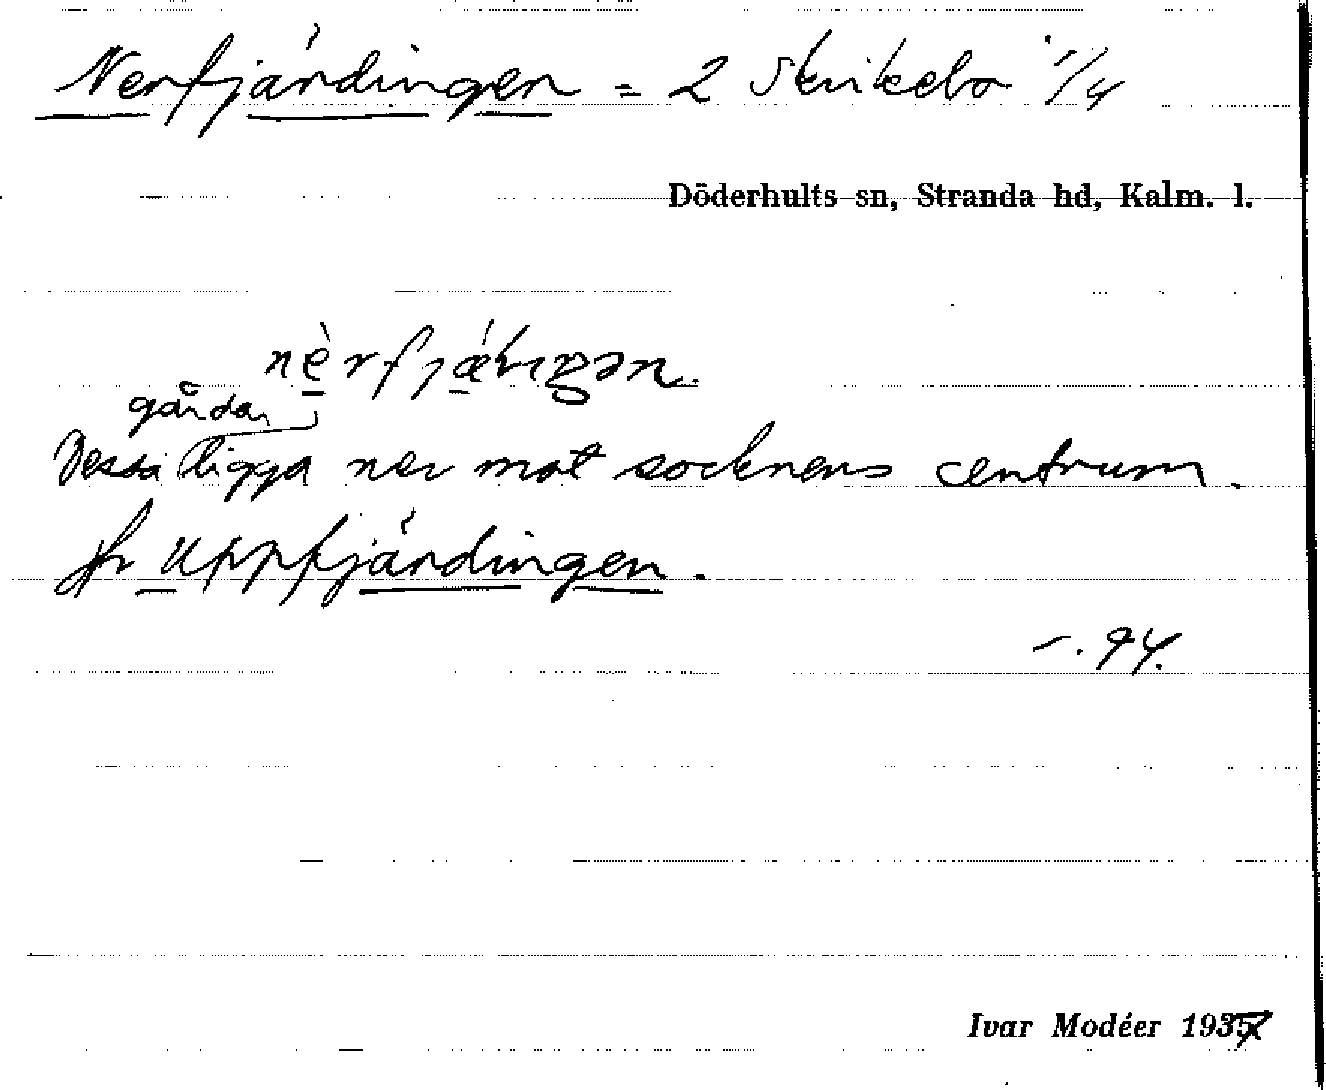 Nerfjärdingen = 2 Skrikebo 1/4
Döderhults sn, Stranda hd, Kalm. l.
gårdar
Dessa ligga ner mot socknens centrum.
Jfr Uppfjärdingen.
s. 94.
Ivar Modéer 1937